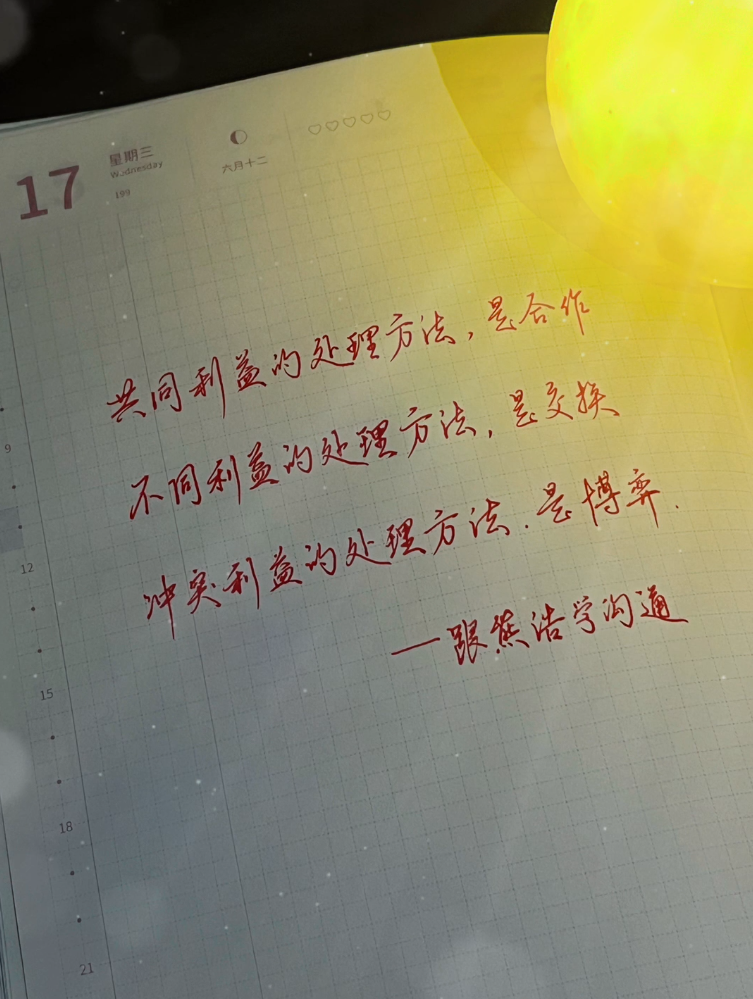 17
星期三
Wednesday
199
六月十二
共同利益的处理方法，是合作
不同利益的处理方法，是交换
冲突利益的处理方法．是博弈．
—跟熊浩学沟通
9
12
15
18
21